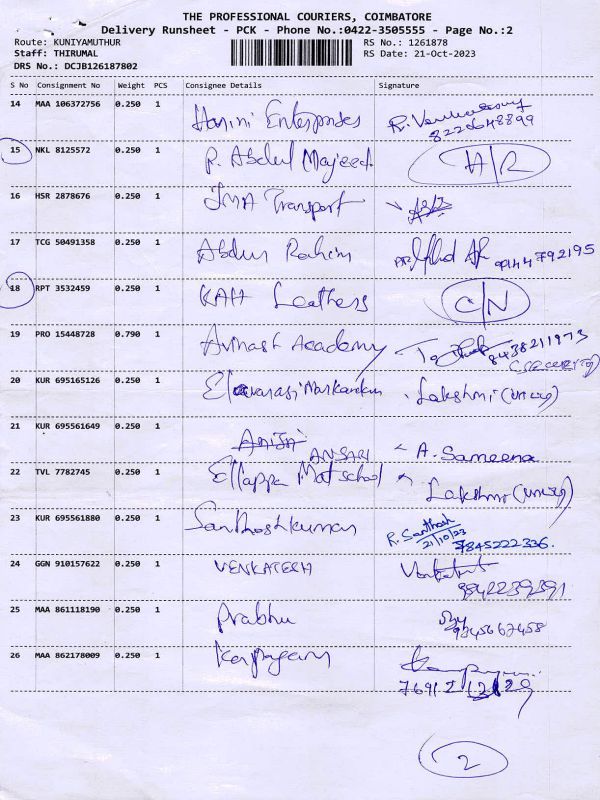 THE PROFESSIONAL COURIERS, COIMBATORE
Delivery Runsheet - PCK - Phone No.:0422-3505555 - Page No.:2
Route: KUNIYAMUTHUR RS No.: 1261878
Staff: THIRUMAL RS Date: 21-Oct-2023
DRS No.: DCJB126187802
S No Consignment No Weight PCS Consignee Details Signature
14 MAA 106372756 0.250 1 Harini Enterprises
15 NKL 8125572 0.250 1 P. Abdul Majeed
16 HSR 2878676 0.250 1 Transport
17 TCG 50491358 0.250 1 Abdur Rahim
18 RPT 3532459 0.250 1 KAH Leathers C/N
19 PRO 15448728 0.790 1 Avinash Academy 8438211973
20 KUR 695165126 0.250 1 Lakshmi
21 KUR 695561649 0.250 1 ANSARI A. Sameena
22 TVL 7782745 0.250 1 Ellappa Mat school Lakshmi
23 KUR 695561880 0.250 1 Santhoshkumar R. Santhosh
21/10/23
7845222336.
24 GGN 910157622 0.250 1 VENKATESH
25 MAA 861118190 0.250 1 Prabhu
26 MAA 862178009 0.250 1 Karpagam
2